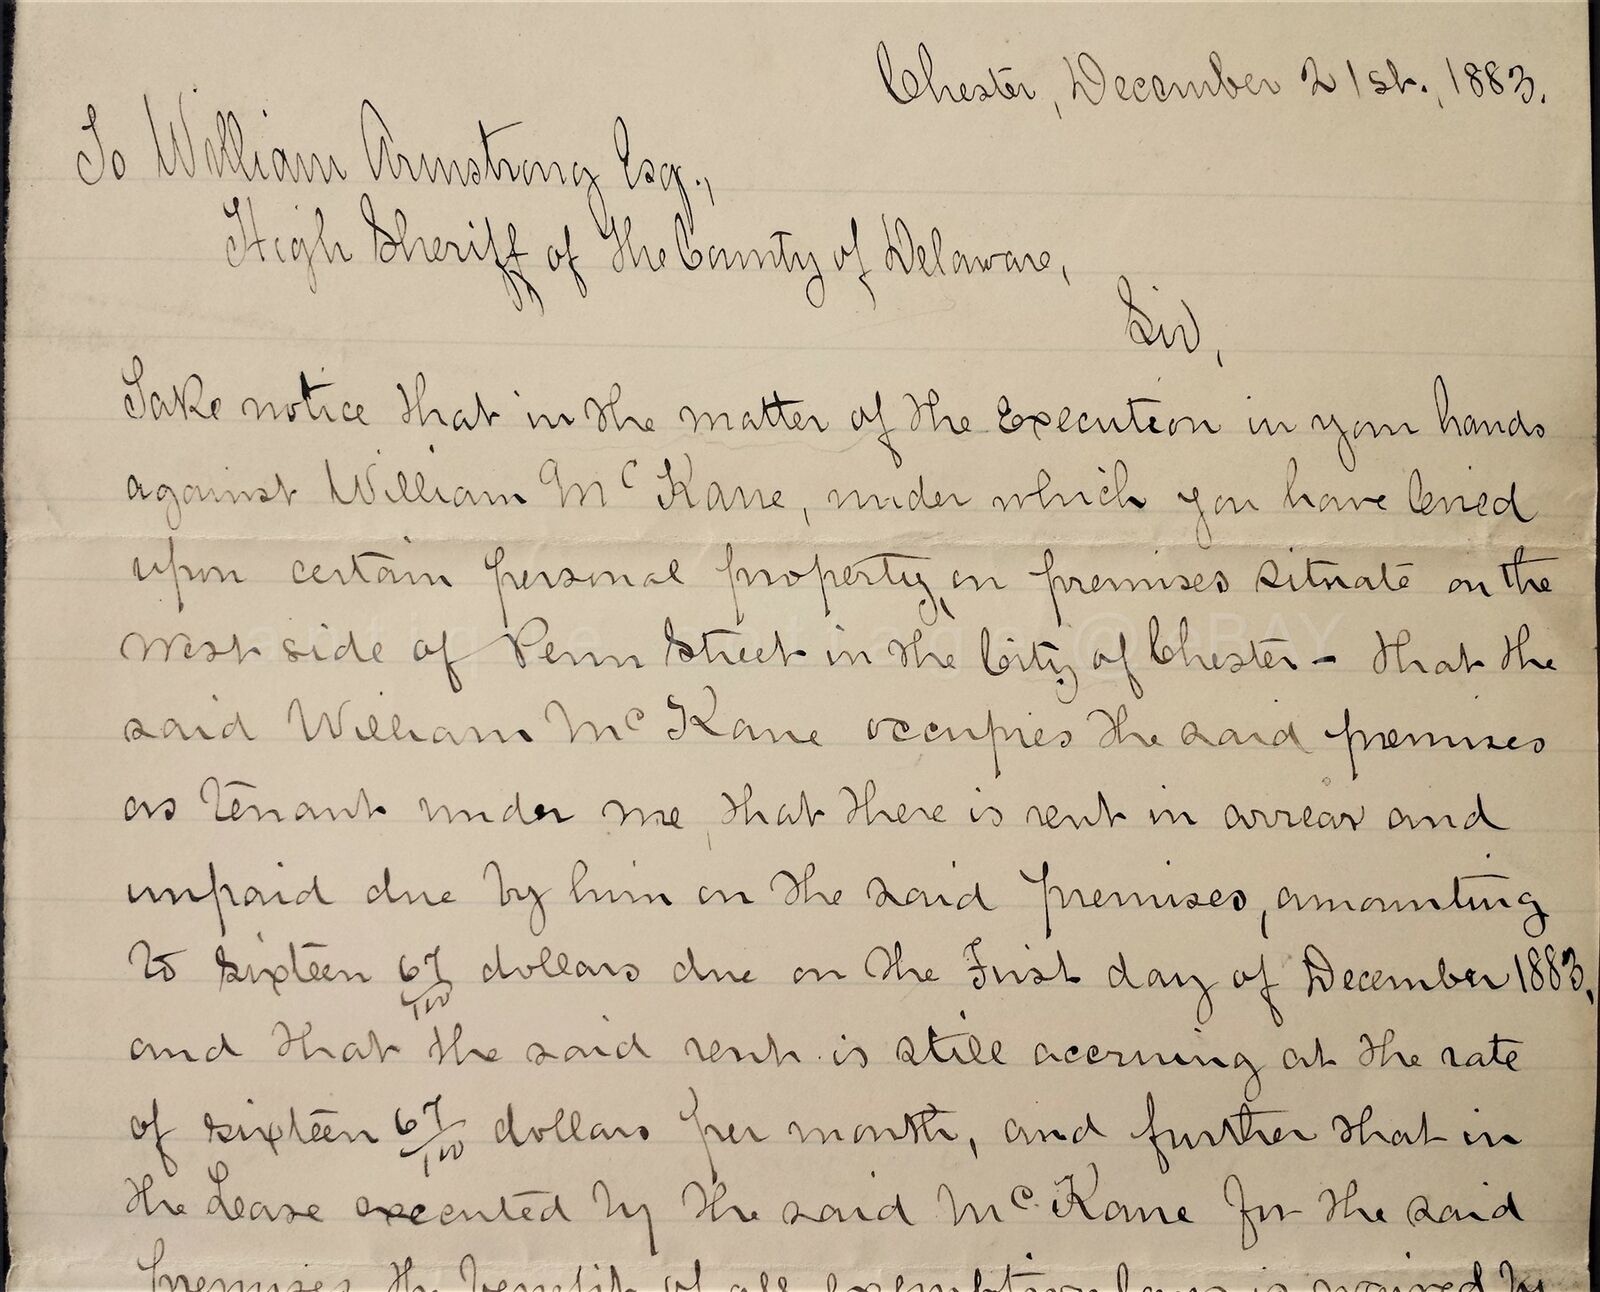 Chester, December 21st., 1883.
To William Armstrong Esq.,
High Sheriff of the County of Delaware,
Sir,
Take notice that in the matter of the Execution in your hands
against William McKane, under which you have levied
upon certain personal property, on premises situate on the
West side of Penn Street in the City of Chester - that the
said William McKane occupies the said premises
as tenant under me, that there is rent in arrear and
unpaid due by him on the said premises, amounting
to sixteen 67/100 dollars due on the First day of December 1883,
and that the said rent is still accruing at the rate
of sixteen 67/100 dollars per month, and further that in
the Lease executed by the said McKane for the said
premises the benefit of all exemption laws is waived by